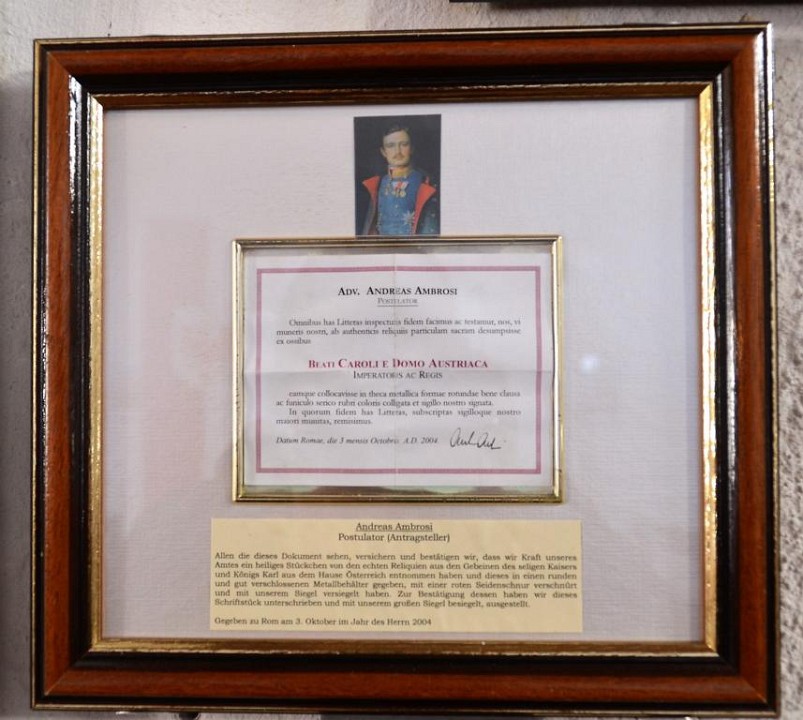 ADV. ANDREAS AMBROSI
POSTULATOR
Omnibus has Litteras inspecturis fidem facimus ac testamur, nos, vi
muneris nostri, ab authenticis reliquiis particulam sacram desumpsisse
ex ossibus
BEATI CAROLI E DOMO AUSTRIACA
IMPERATORIS AC REGIS
eamque collocavisse in theca metallica formae rotundae bene clausa
ac funiculo serico rubri coloris colligata et sigillo nostro signata.
In quorum fidem has Litteras, subscriptas sigilloque nostro
maiori munitas, remisimus.
Datum Romae, die 3 mensis Octobris A.D. 2004
Andreas Ambrosi
Postulator (Antragsteller)
Allen die dieses Dokument sehen, versichern und bestätigen wir, dass wir Kraft unseres
Amtes ein heiliges Stückchen von den echten Reliquien aus den Gebeinen des seligen Kaisers
und Königs Karl aus dem Hause Österreich entnommen haben und dieses in einen runden
und gut verschlossenen Metallbehälter gegeben, mit einer roten Seidenschnur verschnürt
und mit unserem Siegel versiegelt haben. Zur Bestätigung dessen haben wir dieses
Schriftstück unterschrieben und mit unserem großen Siegel besiegelt, ausgestellt.
Gegeben zu Rom am 3. Oktober im Jahr des Herrn 2004